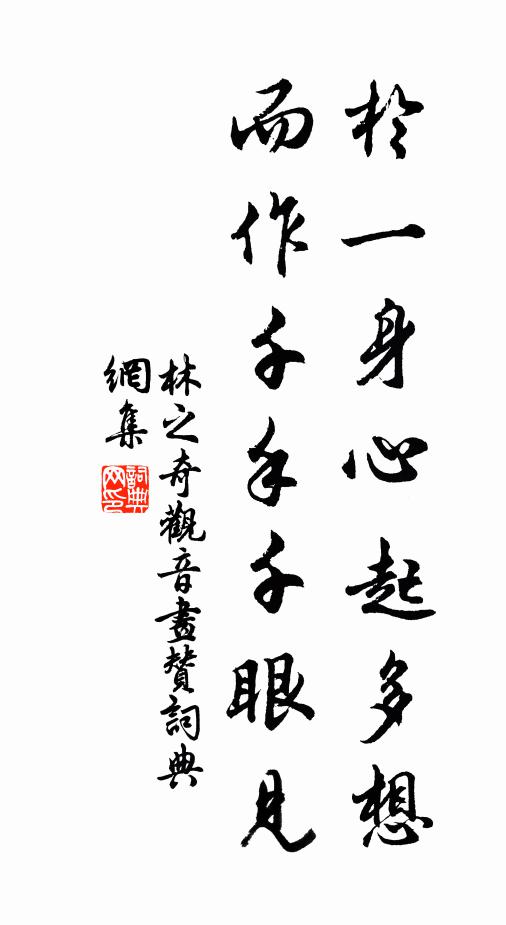 於一身心起多想
而作千手千眼見
林之奇觀音畫贊詞典
網集
詞典
网印